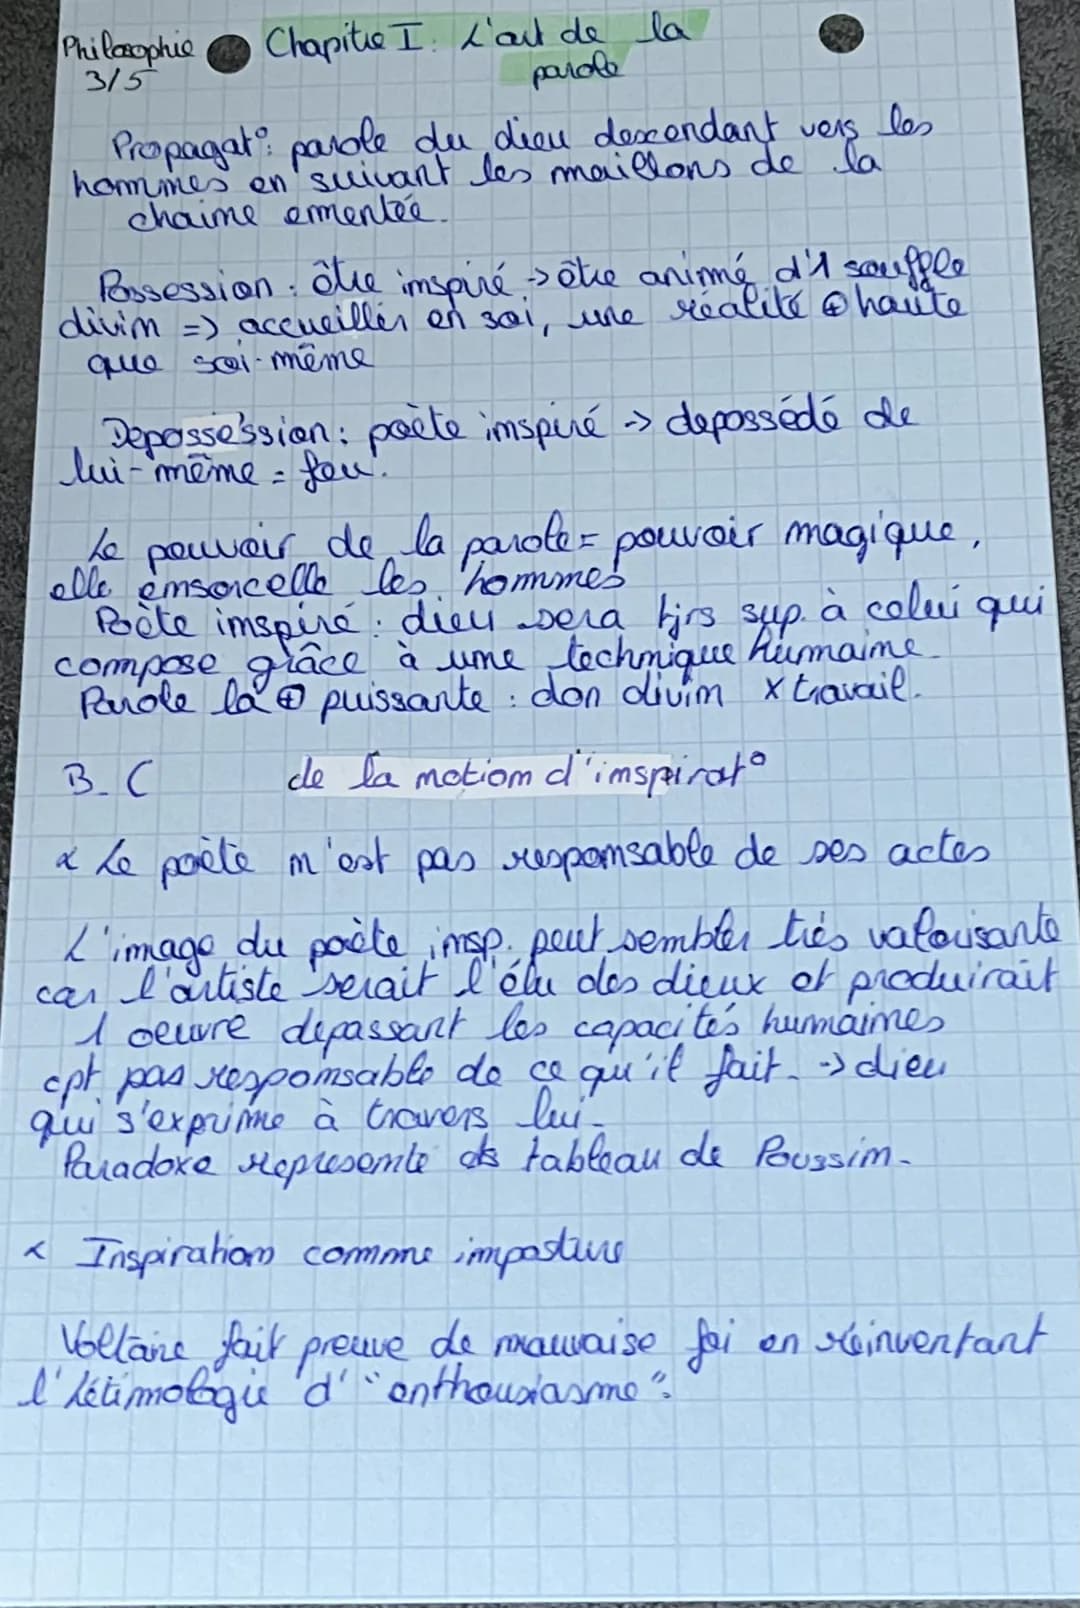 Philosophie
3/5
Chapitre I : L'art de la
parole
Propagat° : parole du dieu descendant vers les
hommes en suivant les maillons de la
chaine ermentée.
Possession : être inspiré -> être animé d'1 souffle
divin => accueillir en soi, une réalité ⊕ haute
que soi-même
Deposse'ssion : poète inspiré -> depossédé de
lui-même = fou.
Le pouvoir de la parole = pouvoir magique,
elle ensorcelle les hommes
Poète inspiré : dieu sera tjrs sup. à celui qui
compose grâce à une technique humaine.
Parole la ⊕ puissante : don divin x travail.
B_C de la notion d'inspirat°
α Le poète n'est pas responsable de ses actes
L'image du poète insp. peut sembler très valorisante
car l'artiste serait l'élu des dieux et produirait
1 oeuvre dépassant les capacités humaines
cpt pas responsable de ce qu'il fait. -> dieu
qui s'exprime à travers lui.
Paradoxe représenté ds tableau de Poussin.
α Inspiration comme imposture
Voltaire fait preuve de mauvaise foi en réinventant
l'létimologie d' "enthousiasme".